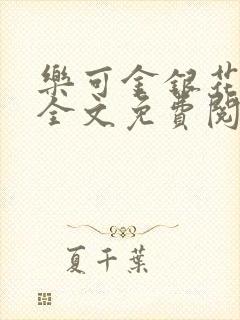 樂可金銀花
全文免費閱
夏千葉